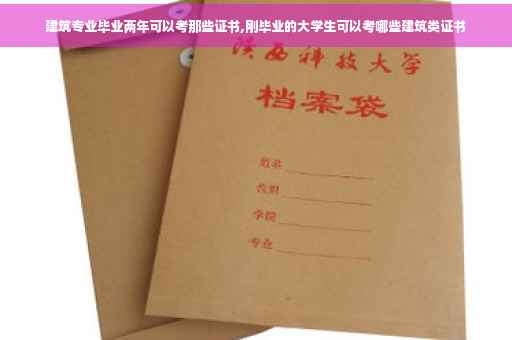 建筑专业毕业两年可以考那些证书,刚毕业的大学生可以考哪些建筑类证书
陕西科技大学
档案袋
姓名
学院
专业